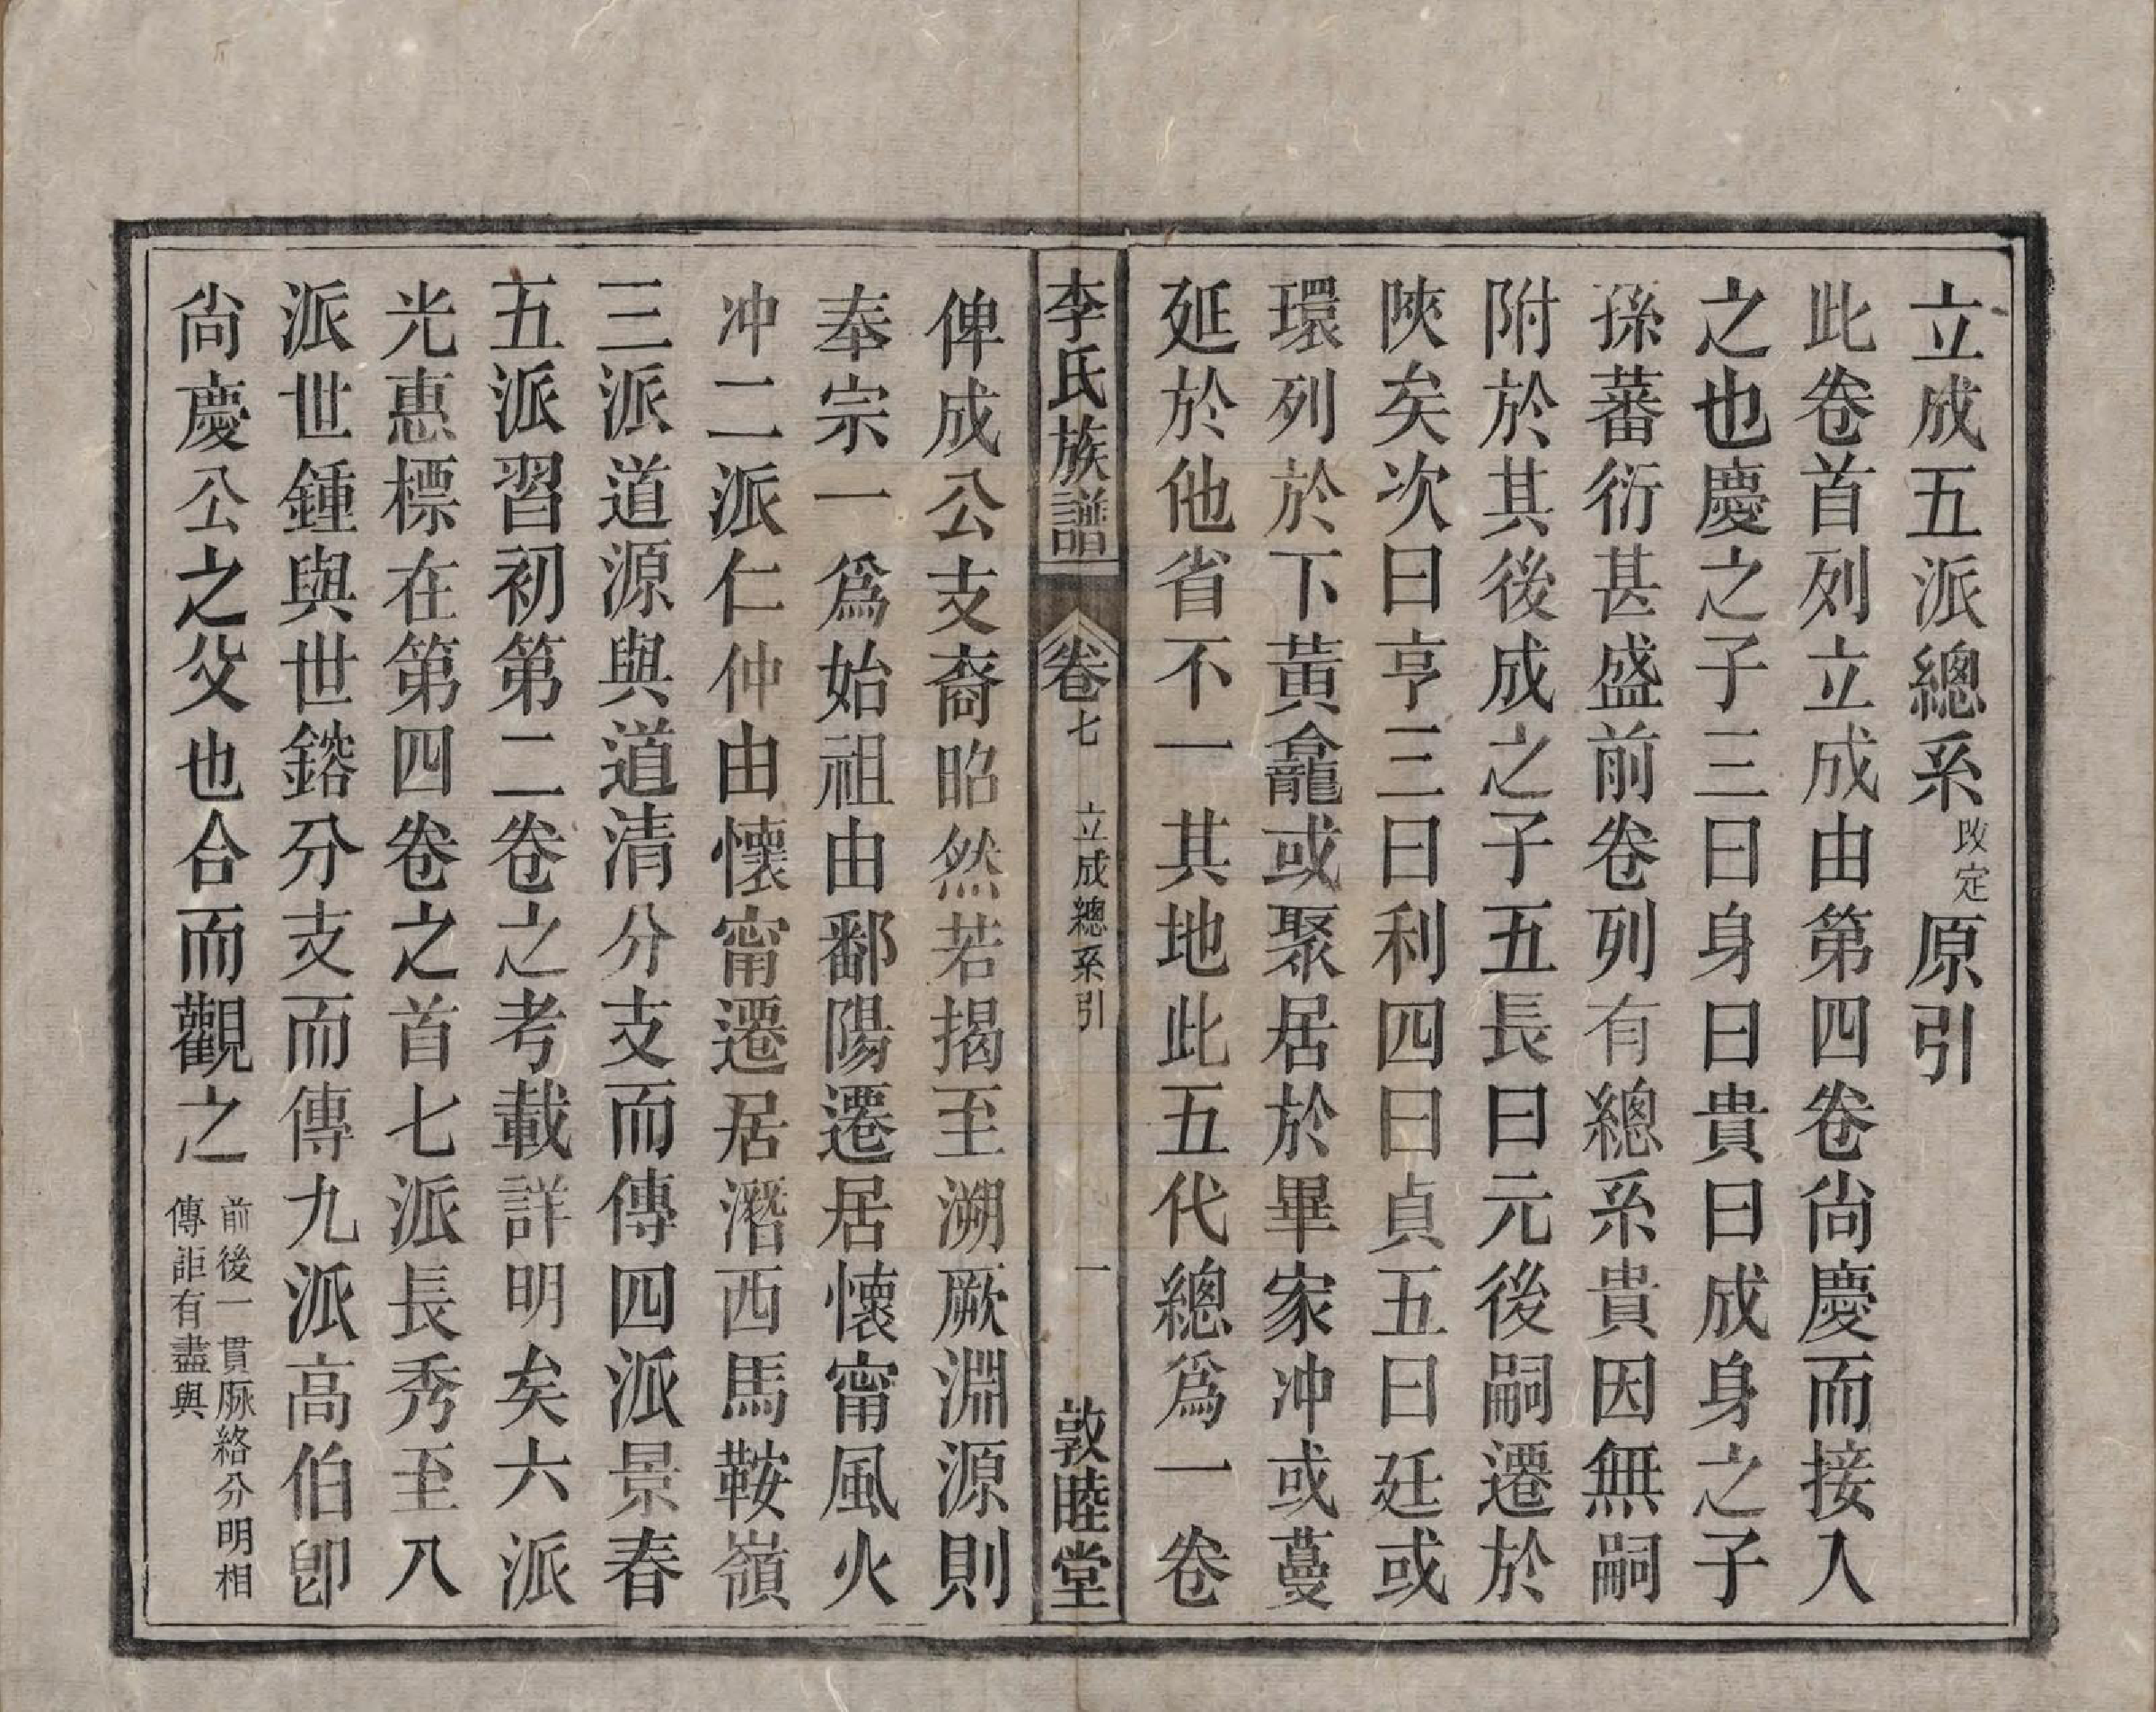 立成五派總系改定原引
此卷首列立成由第四卷尙慶而接入
之也慶之子三曰身曰貴曰成身之子
孫蕃衍甚盛前卷列有總系貴因無嗣
附於其後成之子五長曰元後嗣遷於
陝矣次曰亨三曰利四曰貞五曰廷或
環列於下黃龕或聚居於畢家冲或蔓
延於他省不一其地此五代總爲一卷
李氏族譜 卷七 立成總系引 一 敦睦堂
俾成公支裔昭然若揭至溯厥淵源則
奉宗一爲始祖由鄱陽遷居懷甯風火
冲二派仁仲由懷甯遷居潛西馬鞍嶺
三派道源與道清分支而傳四派景春
五派習初第二卷之考載詳明矣六派
光惠標在第四卷之首七派長秀至八
派世鍾與世鎔分支而傳九派高伯卽
尙慶公之父也合而觀之前後一貫脈絡分明相
傳詎有盡與